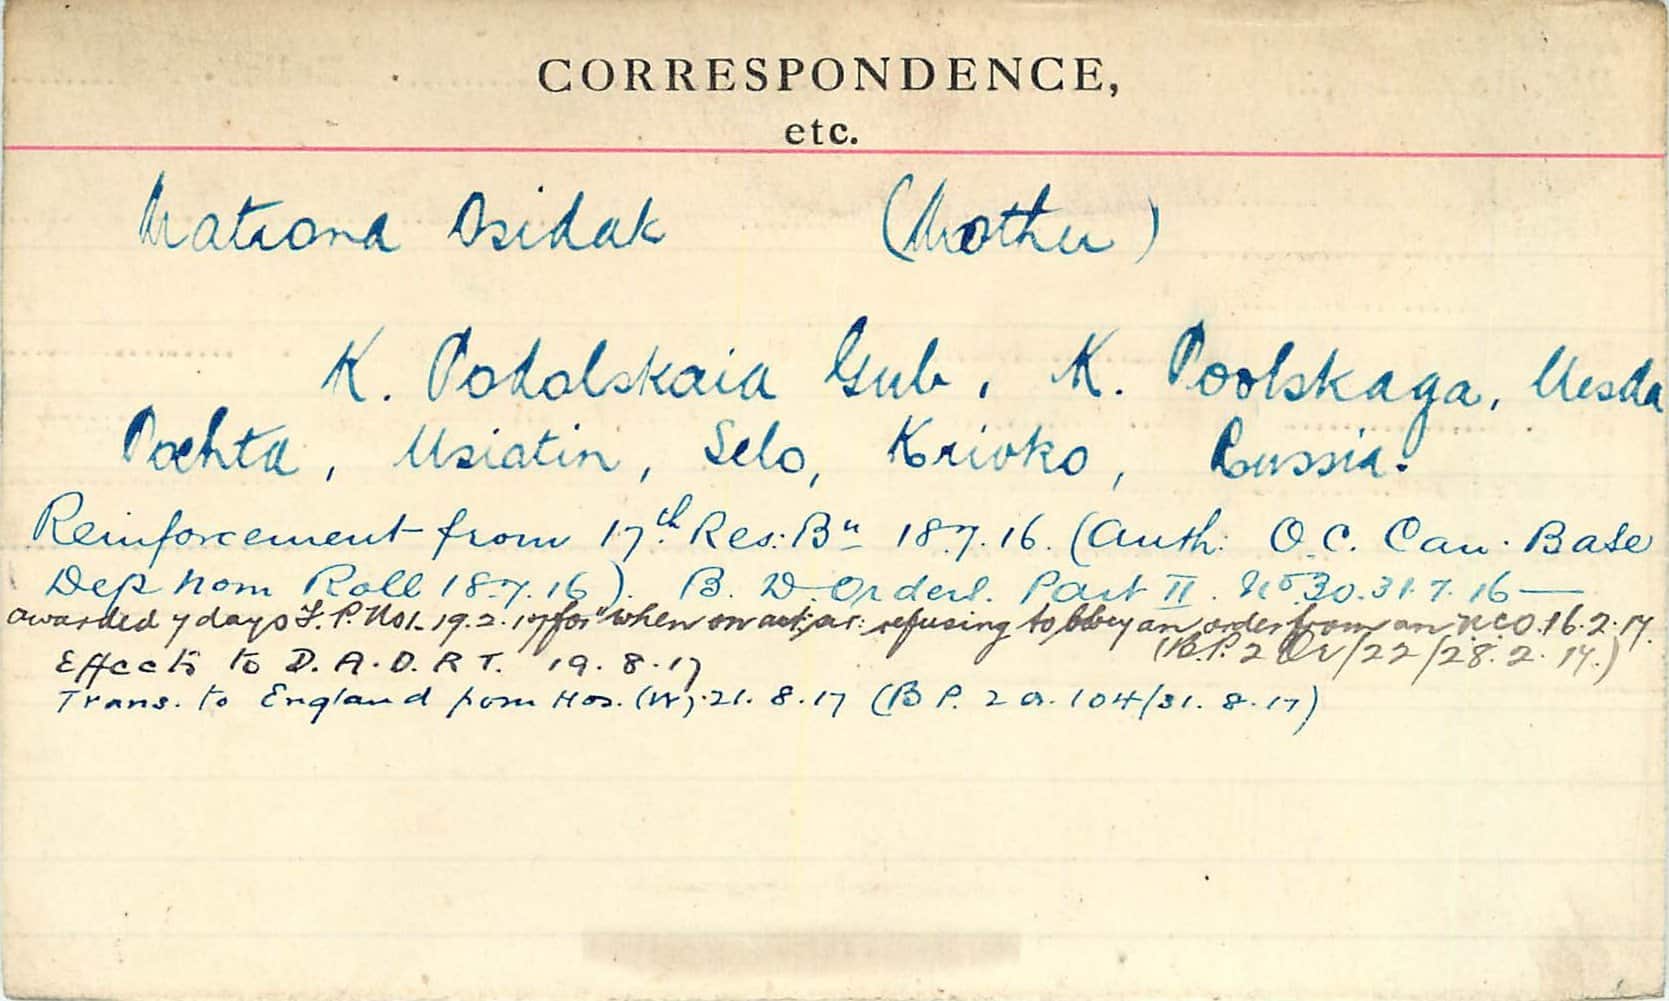 CORRESPONDENCE,
etc.
Matrona Osidak (Mother)
K. Podolskaia Gub, K. Poolskaga, Uesda
Pochta, Usiatin, Selo, Krivko, Russia.
Reinforcement from 17th Res: Bn 18.7.16. (Auth: O.C. Can. Base
Dep Nom Roll 18.7.16). B. D. Orders. Part II. No 30. 31.7.16 —
awarded 7 days F. P. No 1. 19.2.17 for "when on act: ser: refusing to obey an order from an NCO. 16.2.17.
(B.P. 2 Or/22/28.2.17.)
Effects to D.A.D.R.T. 19.8.17
Trans. to England from Hos. (W) 21.8.17 (B P. 2 O. 104/31.8.17)